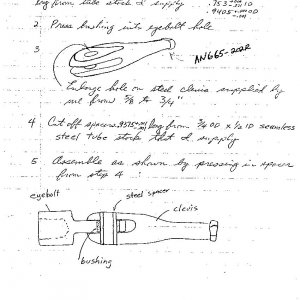 long from tube stock I supply
.753 ID
.9405 OD
2. Press bushing into eyebolt hole
3
AN665-202R
Enlarge hole on steel clevis supplied by
me from 5/8 to 3/4"
4. Cut off spacers .9375 long from 3/4 OD x 1/2 ID seamless
steel tube stock that I supply
5 Assemble as shown by pressing in spacer
from step 4
eyebolt
steel spacer
clevis
bushing